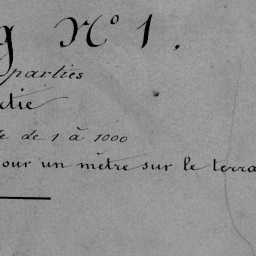 g N° 1.
parties
rtie
e de 1 à 1000
pour un mètre sur le terra